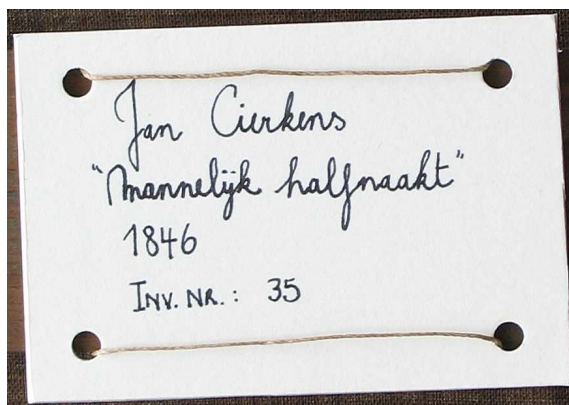 Jan Cierkens
"Mannelijk halfnaakt"
1846
INV. NR.: 35